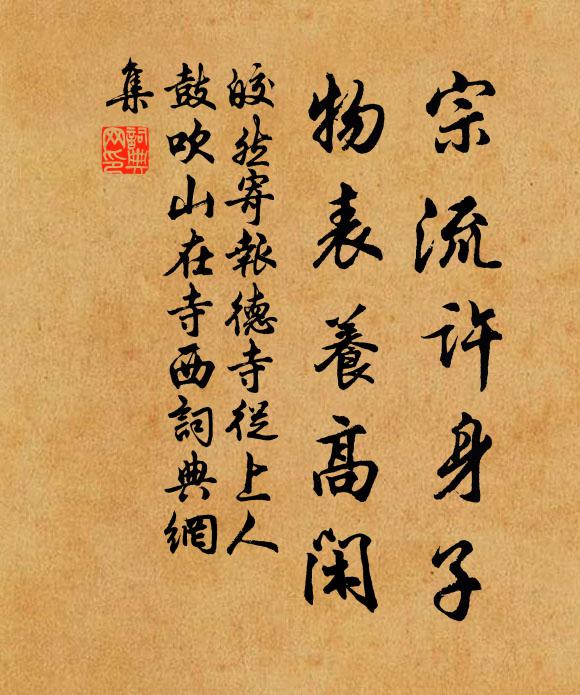 宗流許身子
物表養高閑
皎然寄報德寺從上人
鼓吹山在寺西詞典網
集
詞典
网印